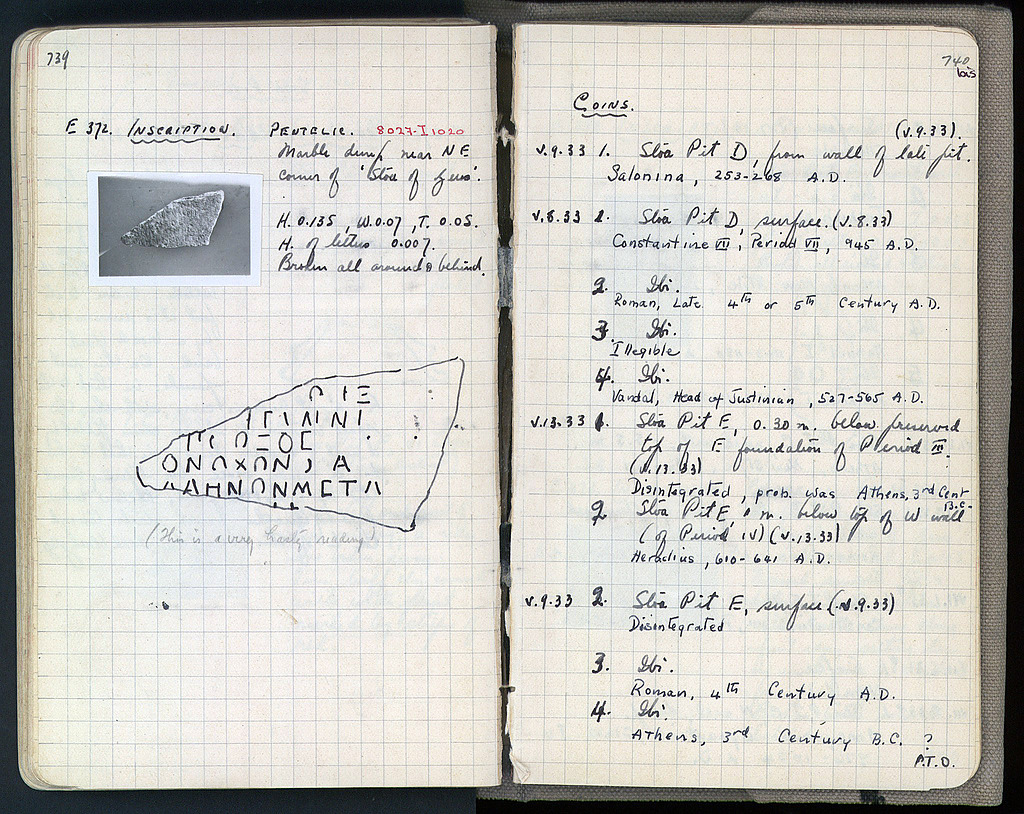 739
E 372. INSCRIPTION. PENTELIC. 8027·I 1020
Marble dump near NE
corner of 'Stoa of Zeus'.
H. 0.135, W. 0.07, T. 0.05.
H. of letters 0.007.
Broken all around & behind.
ΟΝΩΧΩΝ Α
ΛΑΗΝΩΝΜΕΤΑ
(This is a very hasty reading!)
740
bis
COINS.
(V.9.33).
V.9.33 1. Stoa Pit D, from wall of late pit.
Salonina, 253-268 A.D.
V.8.33 1. Stoa Pit D, surface. (V.8.33)
Constantine VII, Period VII, 945 A.D.
2. Ibi.
Roman, Late 4th or 5th Century A.D.
3. Ibi.
Illegible
4. Ibi.
Vandal, Head of Justinian, 527-565 A.D.
V.13.33 1. Stoa Pit E, 0.30 m. below preserved
top of E foundation of Period III.
(V.13.33)
Disintegrated, prob. was Athens, 3rd Cent
B.C.
2. Stoa Pit E, m. below top of W wall
(of Period IV) (V.13.33)
Heraclius, 610-641 A.D.
V.9.33 2. Stoa Pit E, surface (V.9.33)
Disintegrated
3. Ibi.
Roman, 4th Century A.D.
4. Ibi.
Athens, 3rd Century B.C. ?
P.T.O.